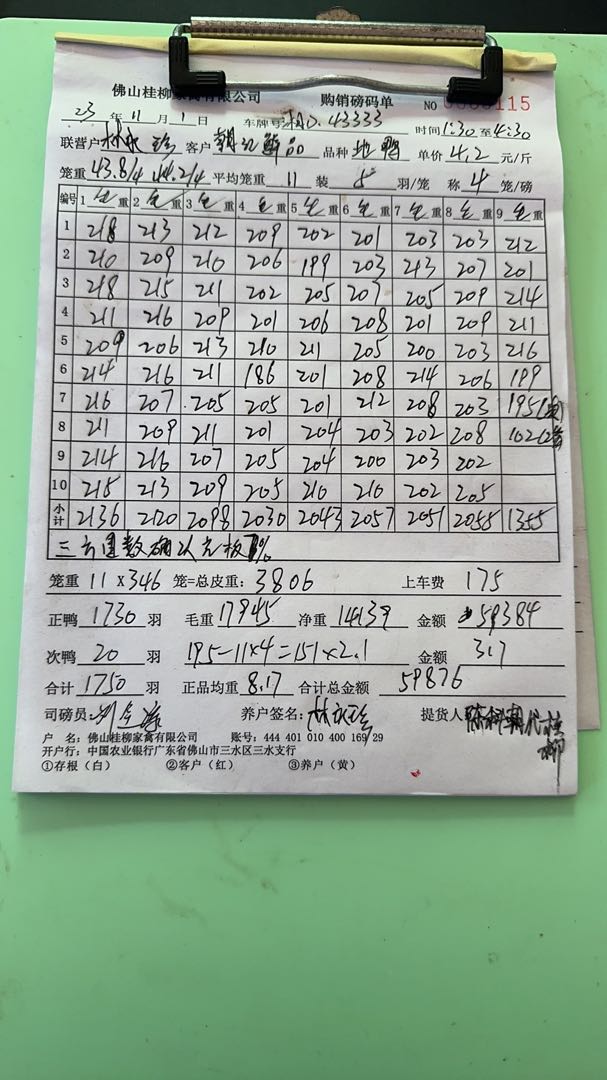 佛山桂柳家禽有限公司 购销磅码单 NO 0005115
23 年 11 月 1 日 车牌号: 湘D.43333 时间 1:30 至 4:30
联营户 林永珍 客户 朝记鲜品 品种 地鸭 单价 4.2 元/斤
笼重 43.8/4 44.2/4 平均笼重 11 装 5 羽/笼 称 4 笼/磅
编号 1 毛重 2 毛重 3 毛重 4 毛重 5 毛重 6 毛重 7 毛重 8 毛重 9 毛重
1 218 213 212 209 202 201 203 203 212
2 210 209 210 206 199 203 213 207 201
3 218 215 211 202 205 207 205 209 214
4 211 216 209 201 206 208 201 209 211
5 209 206 213 210 211 205 200 203 216
6 214 216 211 186 201 208 214 206 199
7 216 207 205 205 201 212 208 203 195
8 211 209 211 201 204 203 202 208 102
9 214 216 207 205 204 200 203 202
10 215 213 209 205 210 210 202 205
小计 2136 2120 2098 2030 2043 2057 2051 2055 1355
笼重 11 X 346 笼=总皮重: 3806 上车费 175
正鸭 1730 羽 毛重 17945 净重 14139 金额 59384
次鸭 20 羽 195-11×4=151×2.1 金额 317
合计 1750 羽 正品均重 8.17 合计总金额 59876
司磅员: 养户签名: 林永珍 提货人
户 名: 佛山桂柳家禽有限公司 账号: 444 401 010 400 169 29
开户行: 中国农业银行广东省佛山市三水区三水支行
①存根（白） ②客户（红） ③养户（黄）